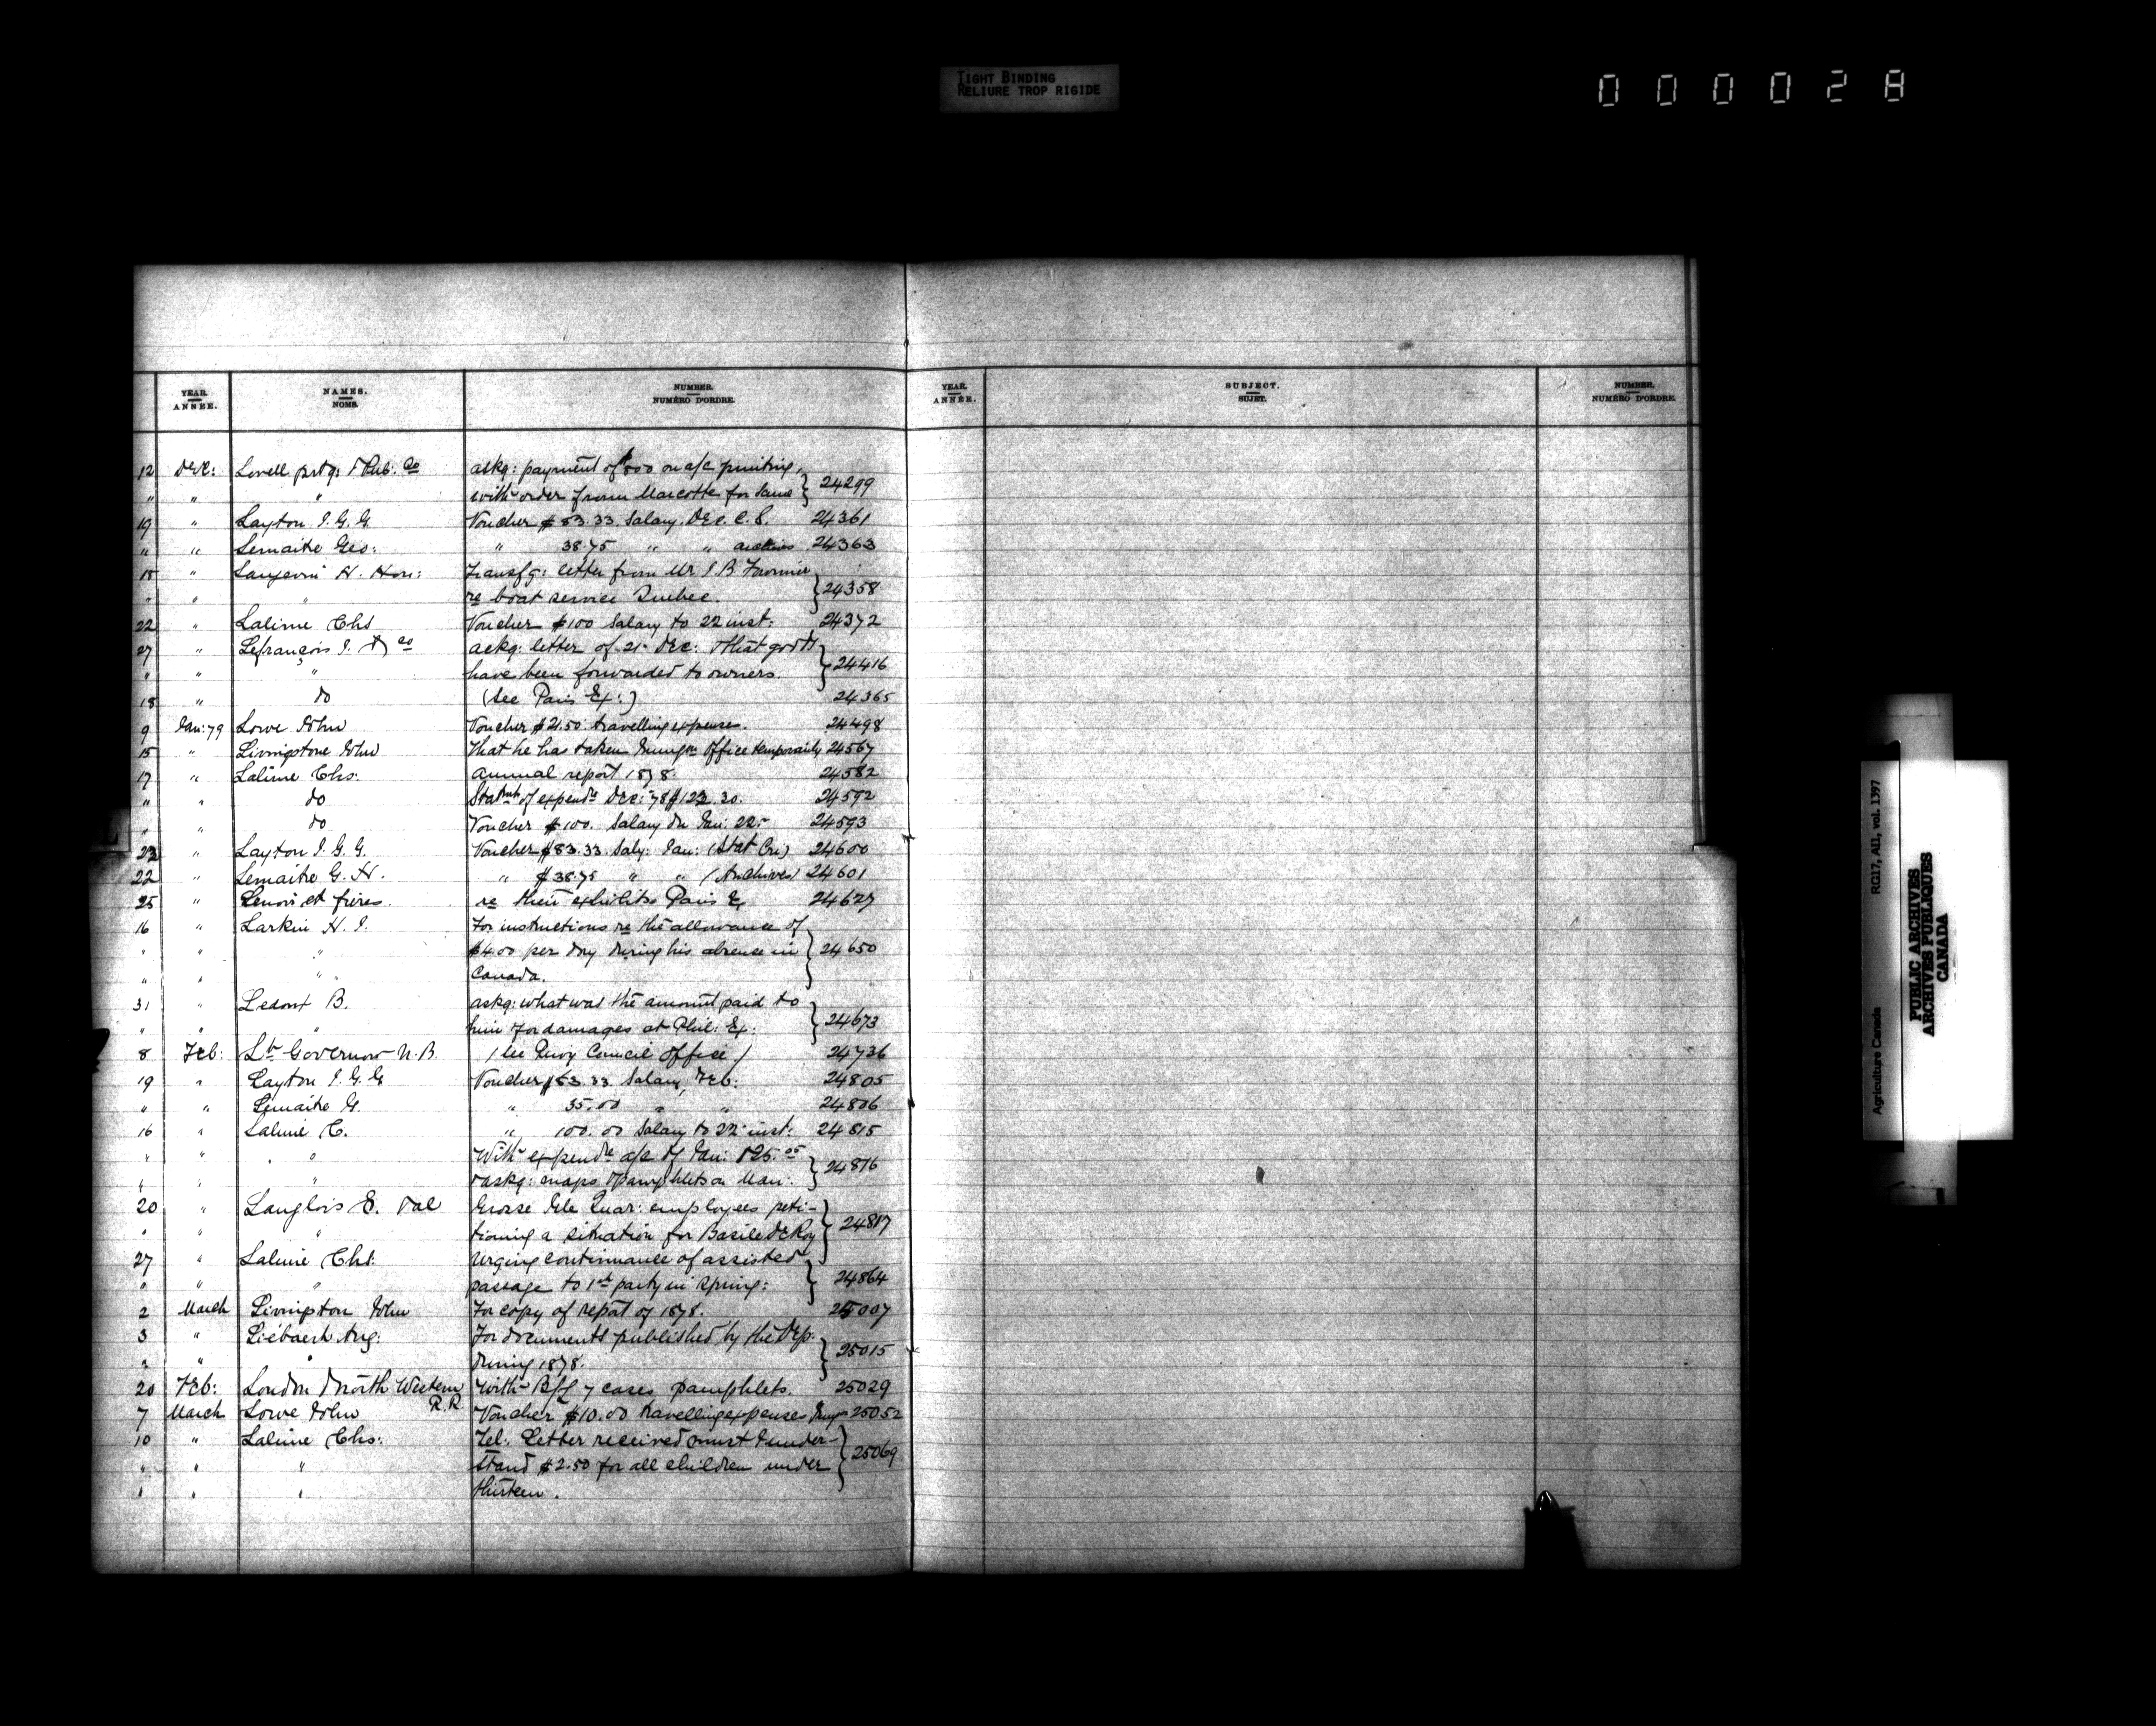 TIGHT BINDING
RELIURE TROP RIGIDE
000028
YEAR. ANNÉE. NAMES. NOMS. NUMBER. NUMÉRO D'ORDRE. YEAR. ANNÉE. SUBJECT. SUJET. NUMBER. NUMÉRO D'ORDRE.
12 Dec: Lovell prtg: & Pub: Co askg: payment of $500 on a/c printing,
" " " with order from Marcotte for same } 24299
19 " Layton I. G. G. Voucher $83.33 Salary. Dec. C. S. 24361
" " Lemaitre Geo: " 38.75 " " archives 24363
18 " Langevin H. Hon: Transfg: letter from Mr J. B. Fournier
" " " re boat service Quebec. } 24358
22 " Lalime Chs Voucher $100 Salary to 22 inst: 24372
27 " Lefrançois I. & Co ackg: letter of 21 Dec: & that goods
" " " have been forwarded to owners. } 24416
18 " do (See Paris Ex:) 24365
9 Jan: 79 Lowe John Voucher $2.50 travelling expenses. 24498
15 " Livingstone John That he has taken Immgon Office temporarily 24567
17 " Lalime Chs: Annual report 1878. 24582
" " do Statmt of expendre Dec: 78 $123.30. 24592
" " do Voucher $100. Salary due Jan: 22 24593
23 " Layton I. G. G. Voucher $83.33 Saly: Jan: (Stat Cri) 24600
22 " Lemaitre G. H. " $38.75 " " (Archives) 24601
25 " Lenoir et frères. re their exhibits Paris Ex 24627
16 " Larkin H. I. For instructions re the allowance of
" " " $4.00 per day during his absence in } 24650
" " " Canada.
31 " Ledoux B. askg: what was the amount paid to
" " " him for damages at Phil: Ex: } 24673
8 Feb: Lt Governor N. B. (See Privy Council Office) 24736
19 " Layton I. G. G Voucher $83.33 Salary, Feb: 24805
" " Lemaitre G. " 35.00 " " 24806
16 " Lalime C. " 100.00 Salary to 22 inst: 24815
" " " With expendre a/c of Jan: 125.25
" " " & askg: maps & pamphlets on Man: } 24816
20 " Langlois E. & al Grosse Ile Quar: employees peti-
" " " tioning a situation for Basile DeRoy } 24817
27 " Lalime Chs: Urging continuance of assisted
" " " passage to 1st party in Spring: } 24864
2 March Livingston John For copy of report of 1878. 25007
3 " Liébaert Aug: For documents published by the Dep:
" " " during 1878. } 25015
20 Feb: London & North Western R.R. With B/L 7 cases pamphlets. 25029
7 March Lowe John Voucher $10.00 travelling expenses Immgn 25052
10 " Lalime Chs: Tel: Letter received must I under-
" " " stand $2.50 for all children under } 25069
" " " thirteen.
Agriculture Canada RG17, AII, vol. 1397
PUBLIC ARCHIVES
ARCHIVES PUBLIQUES
CANADA